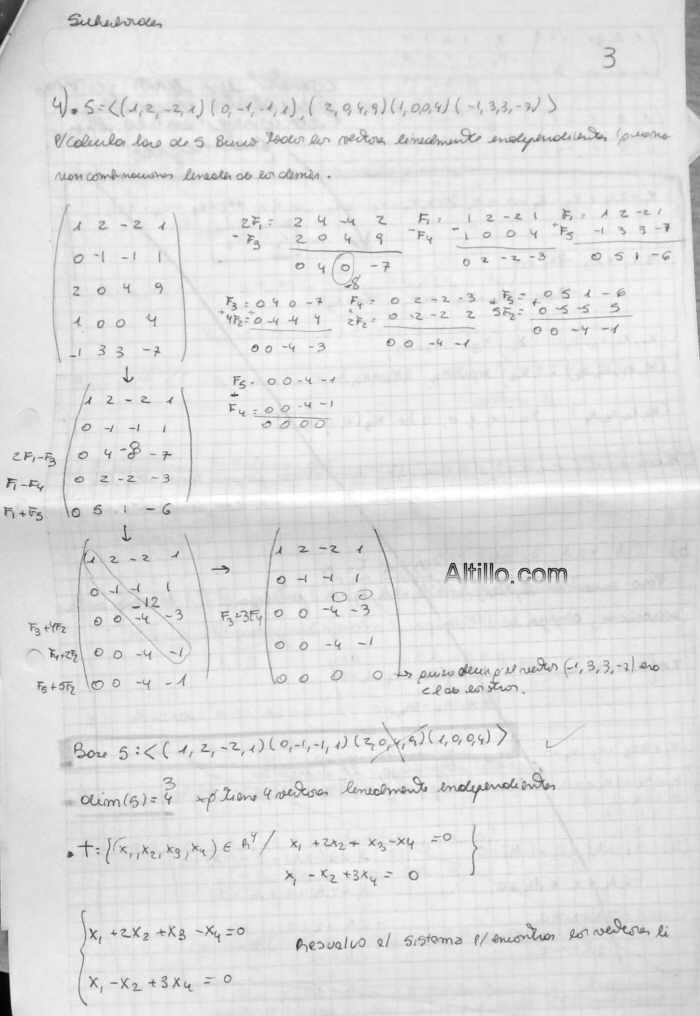 3
4) • S=<(1,2,-2,1)(0,-1,-1,1),(2,0,4,9)(1,0,0,4)(-1,3,3,-7)>
P/Calcular base de S Busco todos los vectores linealmente independientes
non combinaciones lineales de los demás.
1 2 -2 1
0 -1 -1 1
2 0 4 9
1 0 0 4
-1 3 3 -7
2F1= 2 4 -4 2
- F3 2 0 4 9
0 4 0 -7
-8
F1= 1 2 -2 1
-F4 1 0 0 4
0 2 -2 -3
F1= 1 2 -2 1
+F5 -1 3 3 -7
0 5 1 -6
F3= 0 4 0 -7
+4F2= 0 -4 -4 4
0 0 -4 -3
F4= 0 2 -2 -3
+2F2= 0 -2 -2 2
0 0 -4 -1
F5= 0 5 1 -6
+5F2= 0 -5 -5 5
0 0 -4 -1
F5= 0 0 -4 -1
F4= 0 0 -4 -1
0 0 0 0
↓
1 2 -2 1
0 -1 -1 1
2F1-F3 0 4 -8 -7
F1-F4 0 2 -2 -3
F1+F5 0 5 1 -6
↓
1 2 -2 1
0 -1 -1 1
-12
F3+4F2 0 0 -4 -3
F4+2F2 0 0 -4 -1
F5+5F2 0 0 -4 -1
→
1 2 -2 1
0 -1 -1 1
0 0
F3-3F4 0 0 -4 -3
0 0 -4 -1
0 0 0 0 → puedo decir q el vector (-1,3,3,-7) era
cl de los otros.
Altillo.com
Base S:<(1,2,-2,1)(0,-1,-1,1)(2,0,4,9)(1,0,0,4)>
3
dim(S)=4 → p' tiene 4 vectores linealmente independientes
• T={(x1,x2,x3,x4) ∈ R⁴/ x1+2x2+x3-x4=0
x1-x2+3x4=0}
x1+2x2+x3-x4=0
Resuelvo el sistema p/ encontrar los vectores li
x1-x2+3x4=0